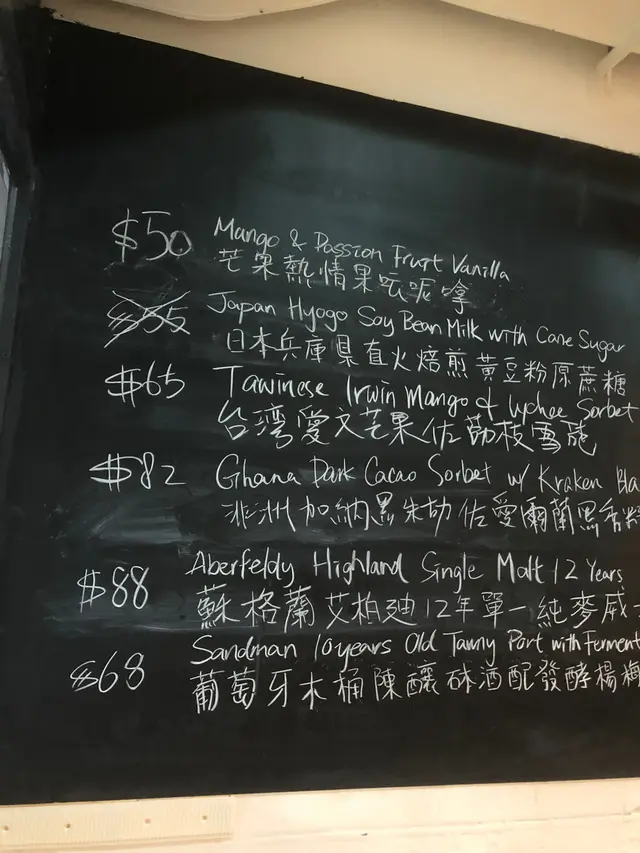 $50 Mango & Passion Fruit Vanilla
芒果熱情果呍呢嗱
$55 Japan Hyogo Soy Bean Milk with Cane Sugar
日本兵庫県直火焙煎黃豆粉原蔗糖
$65 Tawinese Irwin Mango & Lychee Sorbet
台灣愛文芒果佐荔枝雪葩
$82 Ghana Dark Cacao Sorbet w/ Kraken Bla
非洲加納黑朱劫佐愛爾蘭黑香料
$88 Aberfeldy Highland Single Malt 12 Years
蘇格蘭艾柏迪12年單一純麥威
$68 Sandman 10 years Old Tawny Port with Ferment
葡萄牙木桶陳釀砵酒配發酵楊梅